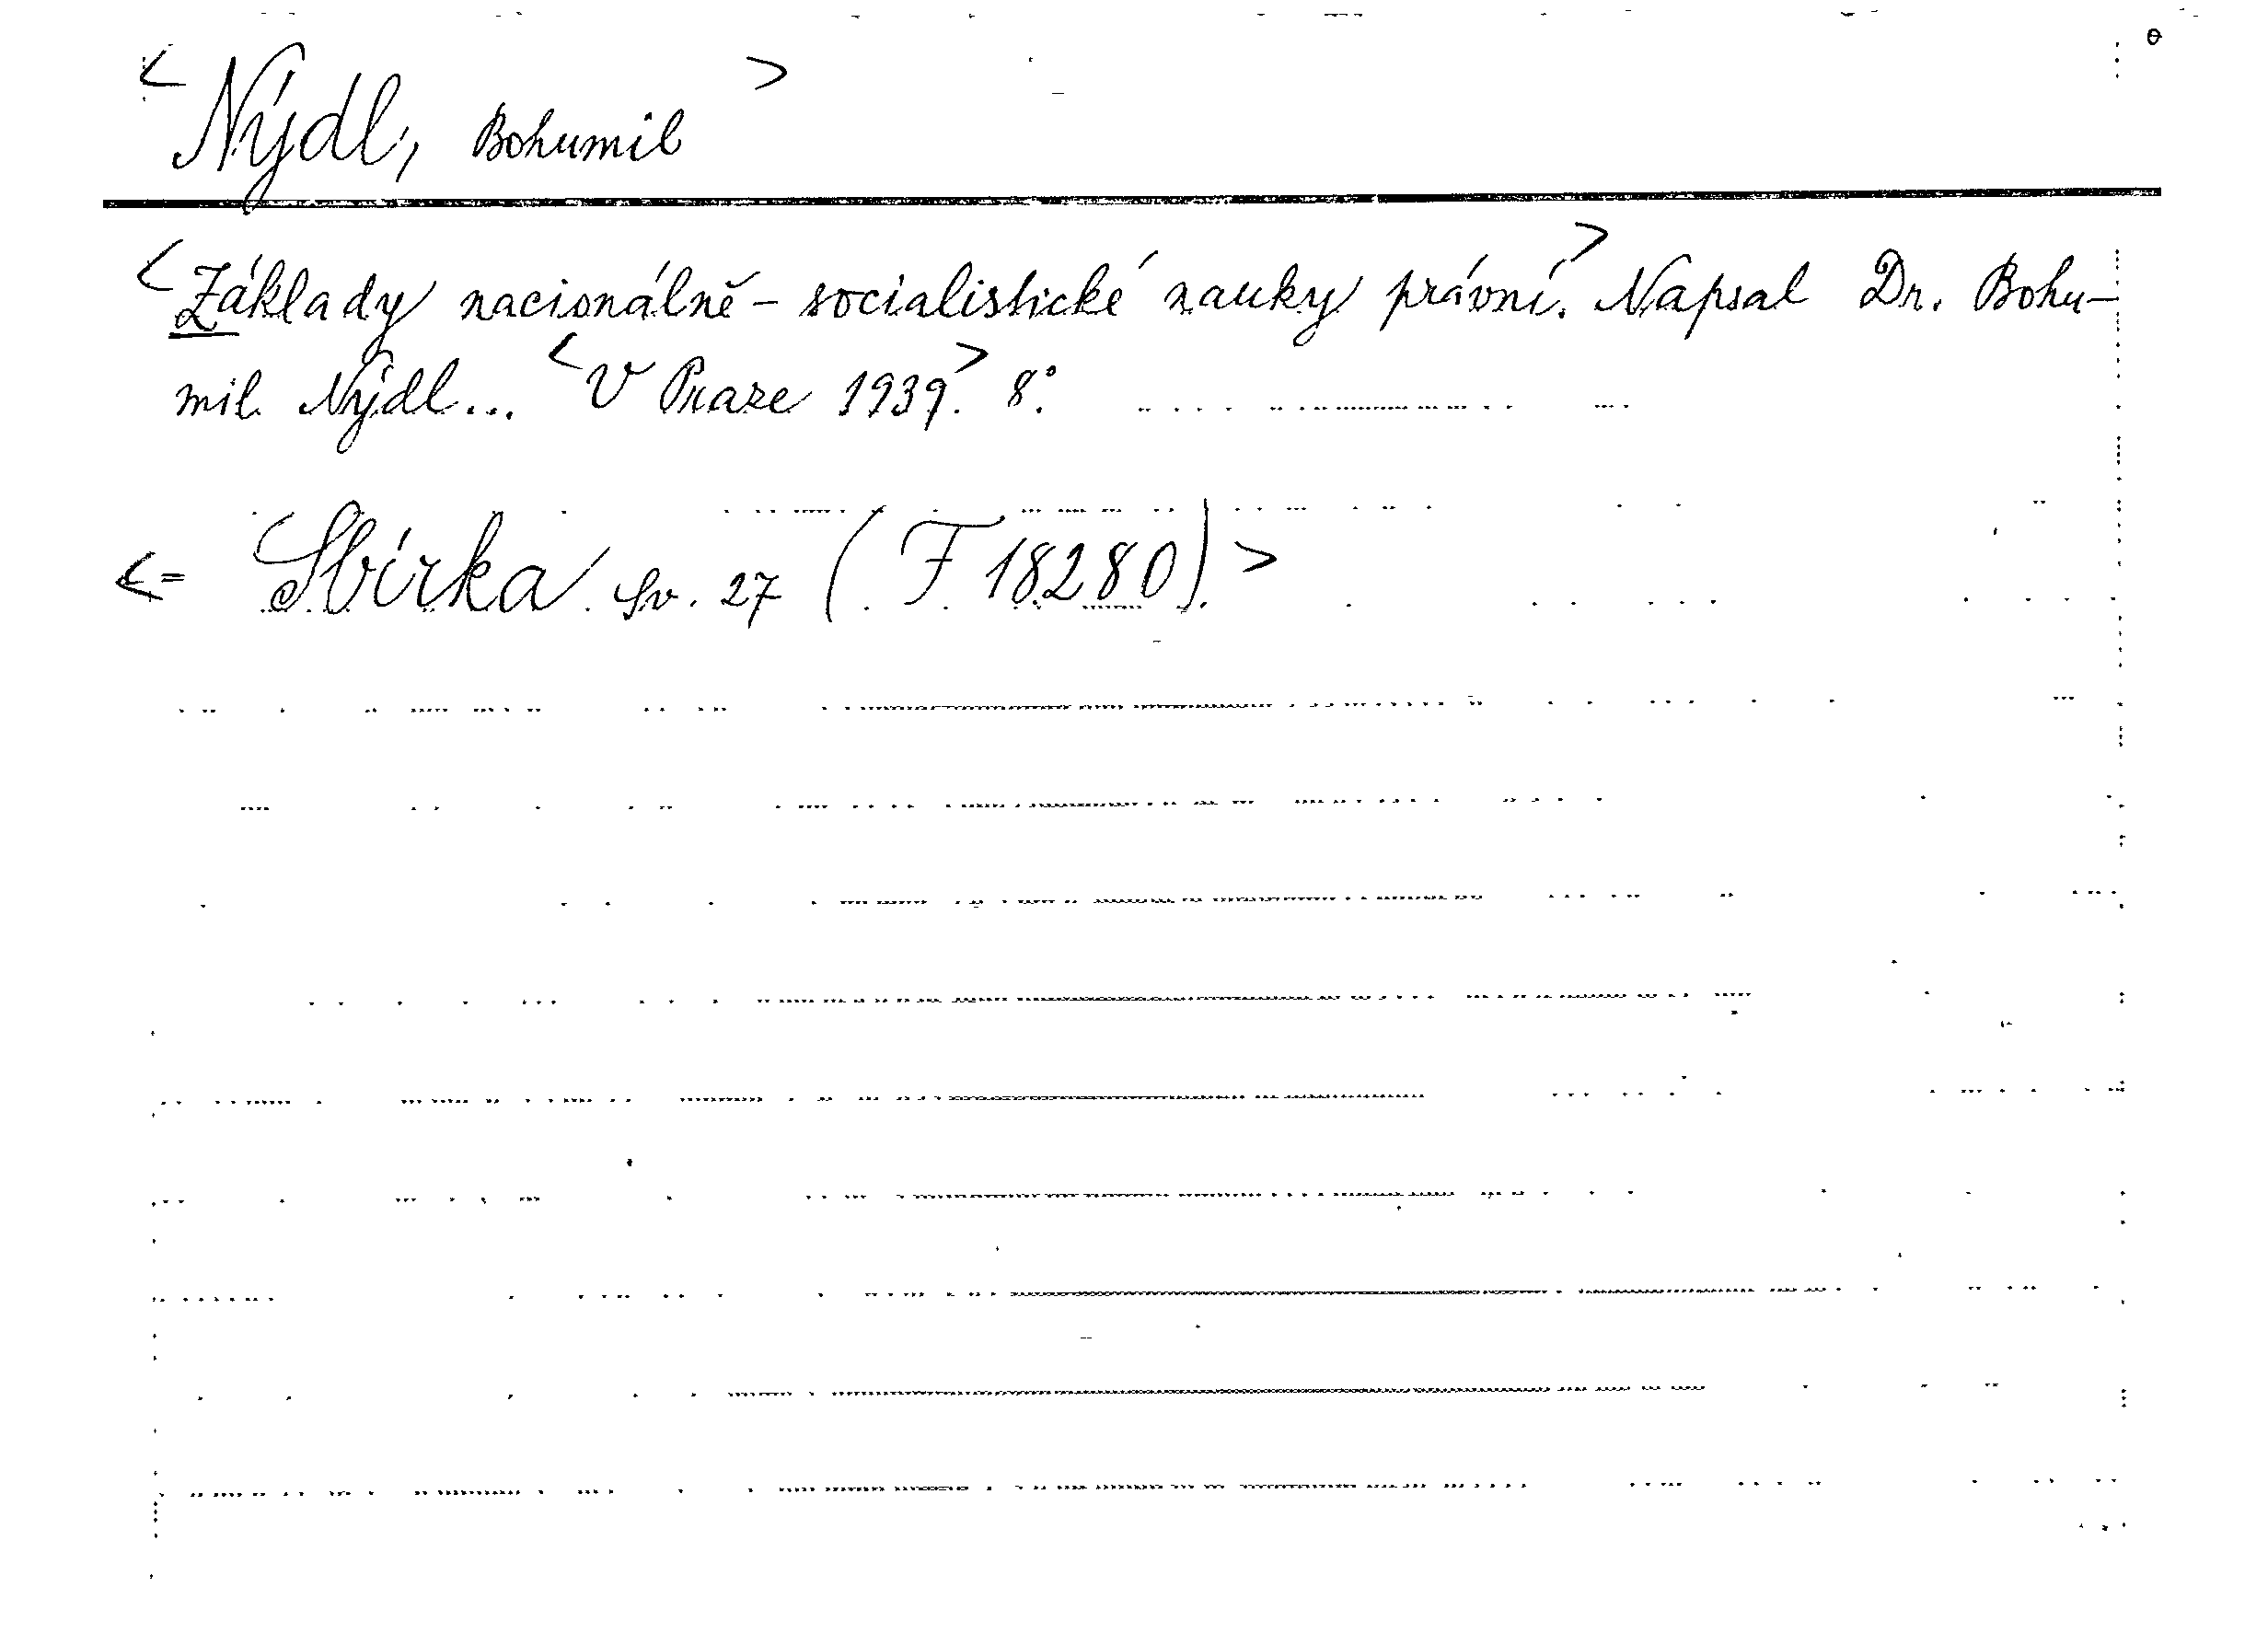 <Nýdl, Bohumil>
<Základy nacionálně-socialistické nauky právní.> Napsal Dr. Bohu-
mil Nýdl... <V Praze 1939.> 8°.
<= Sbírka sv. 27 (F 18280).>